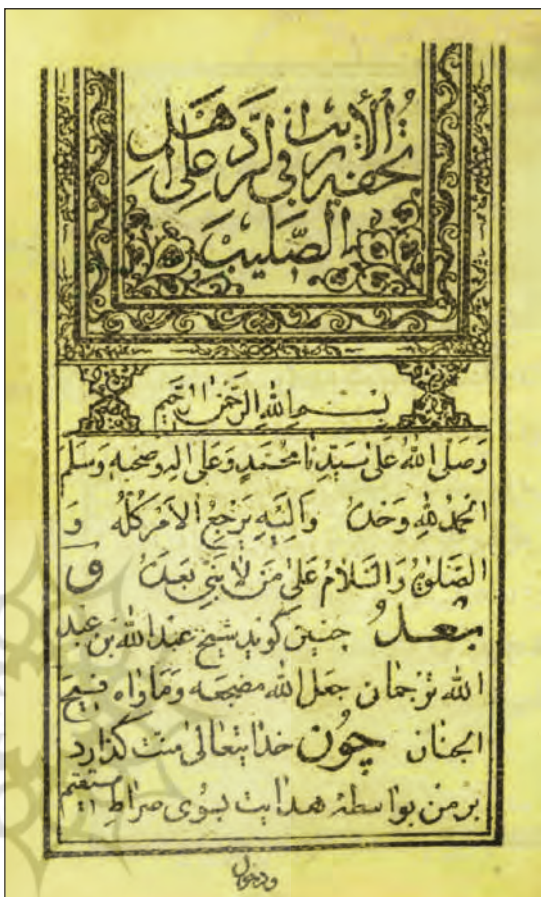 تحفة الأریب
فی الرد علی اهل
الصلیب
بسم الله الرحمن الرحیم
وَصَلَّی اللهُ عَلٰی سَیِّدِنَا مُحَمَّدٍ وَعَلٰی اٰلِهِ وَصَحْبِهِ وَسَلَّمَ
الحمدُ للهِ وَحدَهُ وَاِلَیْهِ یَرْجِعُ الاَمْرُ کُلُّهُ وَ
الصَّلوٰةُ وَالسَّلَامُ عَلٰی مَن لَا نَبِیَّ بَعدَهُ وَ
بَعدُ چنین کوید شیخ عبدالله بن عبد
الله ترجمان جعل الله مضجعه وَمَاوٰاه فسیح
الجنان چُون خدایتعالی منت کذارد
بر من بواسطهٔ هدایت بسُوی صراطِ مستقیم
ودخول